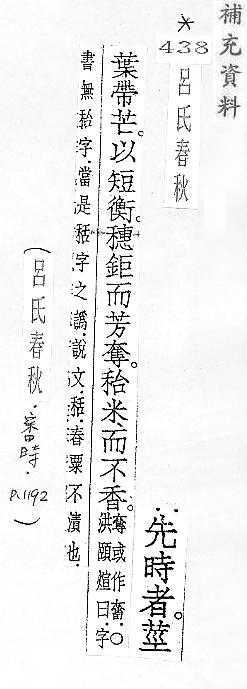 補充資料
*
438
呂氏春秋
先時者。莖
葉帶芒。以短衡。穗鉅而芳奪。秮米而不香。
奪或作奮。○
洪頤煊曰：字
書無秮字．當是秳字之譌．說文．秳．舂粟不潰也．
（呂氏春秋．審時．P.1192）